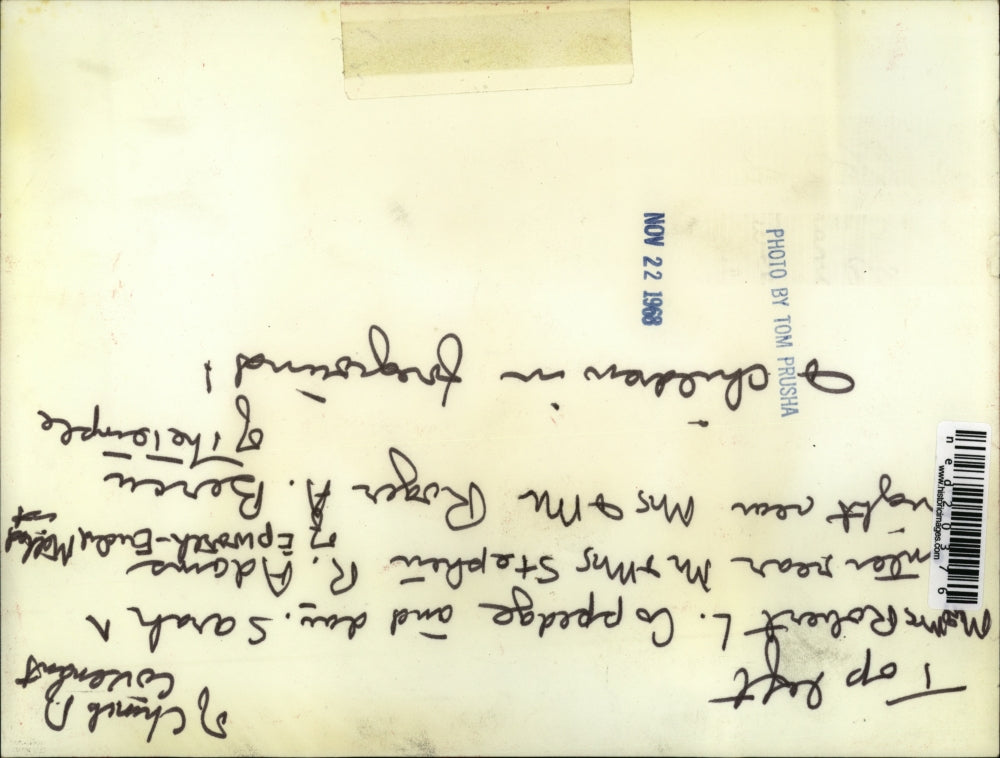 Top left
of Church of Covenant
Mr & Mrs Robert L. Coppedge and dau. Sarah
center rear Mr & Mrs Stephen R. Adams
of Epworth-Euclid Methodist
right rear Mrs & Mr Roger A. Beren
of The Temple
& children in foreground
PHOTO BY TOM PRUSHA
NOV 22 1968
ned203776
www.historicimages.com